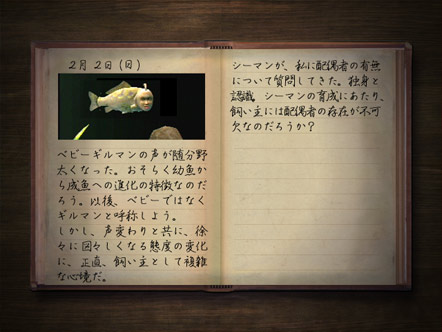 2月2日(日)
ベビーギルマンの声が随分野
太くなった。おそらく幼魚か
ら成魚への進化の特徴なのだ
ろう。以後、ベビーではなく
ギルマンと呼称しよう。
しかし、声変わりと共に、徐
々に図々しくなる態度の変化
に、正直、飼い主として複雑
な心境だ。
シーマンが、私に配偶者の有無
について質問してきた。独身と
認識。シーマンの育成にあたり、
飼い主には配偶者の存在が不可
欠なのだろうか？